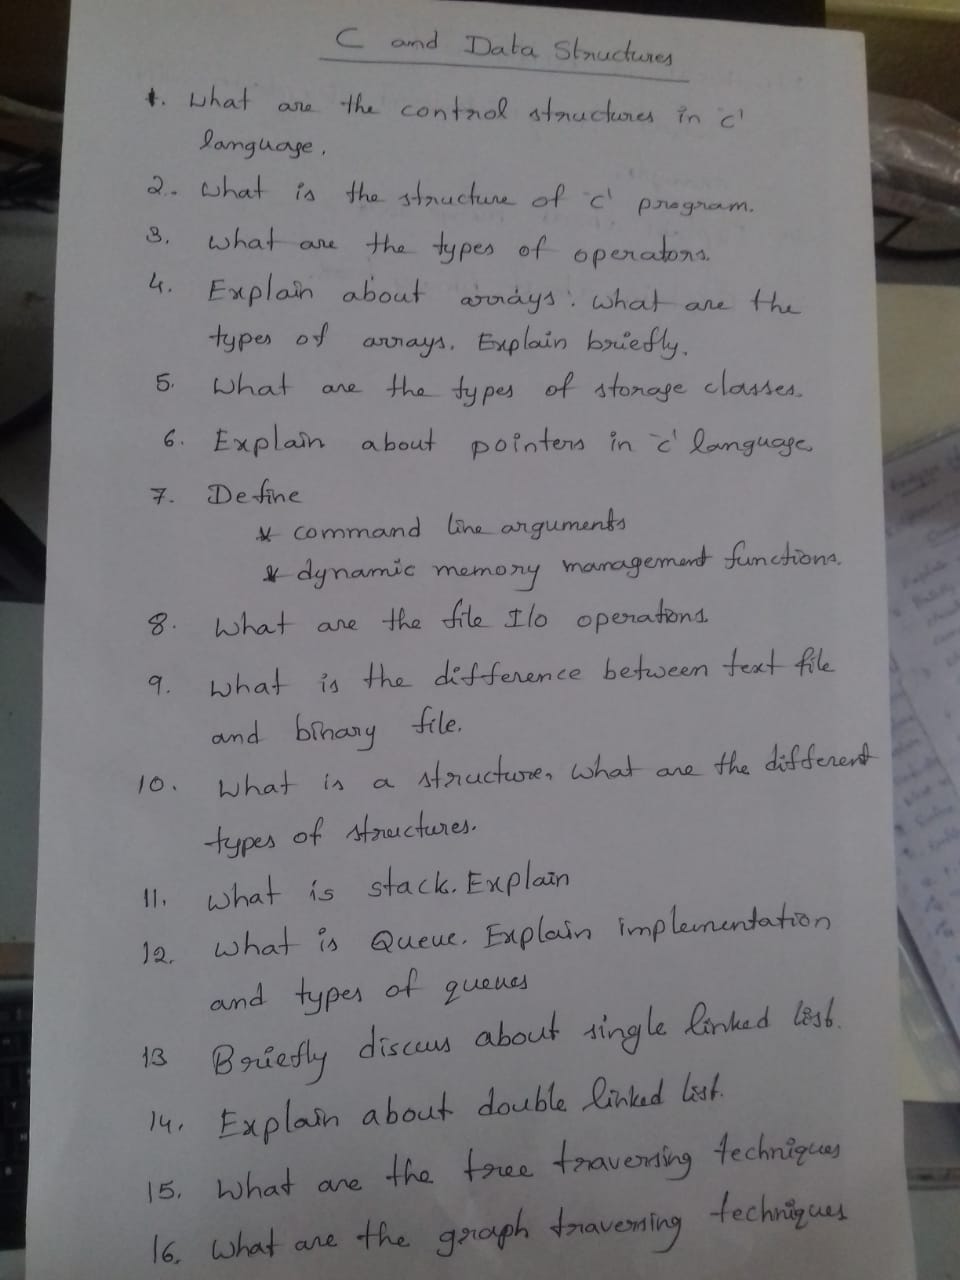 C and Data Structures
1. What are the control structures in 'c'
language.
2. What is the structure of 'c' program.
3. What are the types of operators.
4. Explain about arrays. What are the
types of arrays. Explain briefly.
5. What are the types of storage classes.
6. Explain about pointers in 'c' language
7. Define
* command line arguments
* dynamic memory management functions.
8. What are the file I/o operations.
9. What is the difference between text file
and binary file.
10. What is a structure. What are the different
types of structures.
11. What is stack. Explain
12. What is Queue. Explain implementation
and types of queues
13 Briefly discuss about single linked list.
14. Explain about double linked list.
15. What are the tree traversing techniques
16. What are the graph traversing techniques